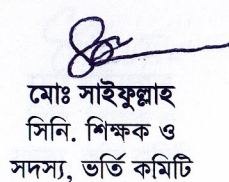 মোঃ সাইফুল্লাহ
সিনি. শিক্ষক ও
সদস্য, ভর্তি কমিটি